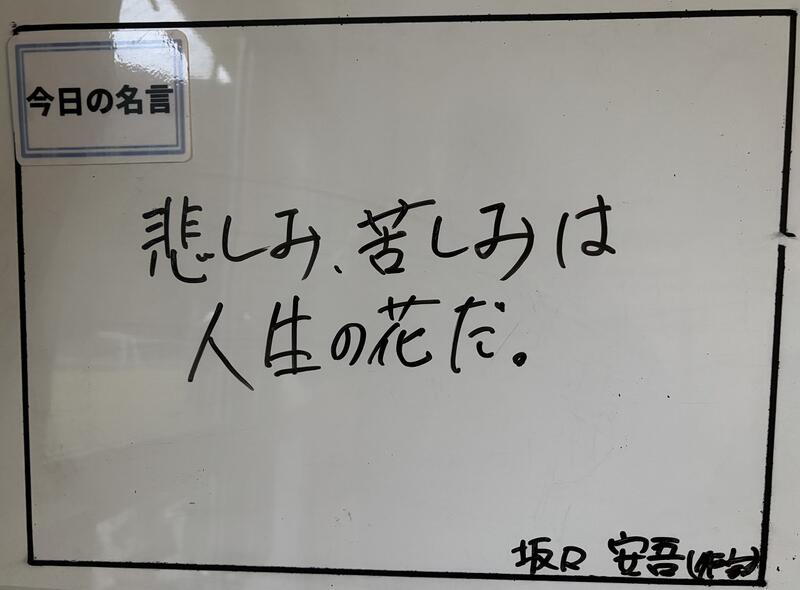 今日の名言
悲しみ、苦しみは
人生の花だ。
坂口 安吾(作家)